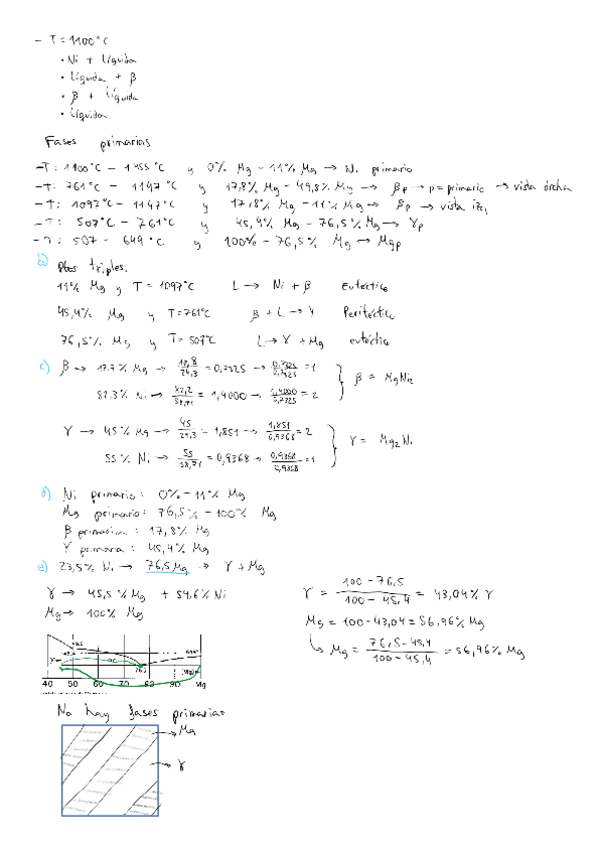 - T = 1100°C
· Ni + líquida
· líquida + β
· β + líquida
· líquida
Fases primarias
-T: 1100°C - 1455°C y 0% Mg - 11% Mg → Ni primario
-T: 761°C - 1147°C y 17,8% Mg - 49,8% Mg → βp → p = primario → vista drcha
-T: 1097°C - 1147°C y 17,8% Mg - 11% Mg → βp → vista izq
-T: 507°C - 761°C y 45,4% Mg - 76,5% Mg → γp
-T: 507 - 649°C y 100% - 76,5% Mg → Mgp
b) Ptos triples:
11% Mg y T = 1097°C L → Ni + β Eutéctico
45,4% Mg y T = 761°C β + L → γ Peritéctico
76,5% Mg y T = 507°C L → γ + Mg eutéctico
c) β → 17,7% Mg → 17,8/24,3 = 0,7325 → 0,7325/0,7325 = 1
82,3% Ni → 82,2/58,71 = 1,4000 → 1,4000/0,7325 = 2 } β = MgNi2
γ → 45% Mg → 45/24,3 = 1,851 → 1,851/0,9368 = 2
55% Ni → 55/58,71 = 0,9368 → 0,9368/0,9368 = 1 } γ = Mg2Ni
d) Ni primario: 0% - 11% Mg
Mg primario: 76,5% - 100% Mg
β primaria: 17,8% Mg
γ primaria: 45,4% Mg
e) 23,5% Ni → 76,5 Mg → γ + Mg
γ → 45,5% Mg + 54,6% Ni
Mg → 100% Mg
γ = 100 - 76,5 / 100 - 45,4 = 43,04% γ
Mg = 100 - 43,04 = 56,96% Mg
↳ Mg = 76,5 - 45,4 / 100 - 45,4 = 56,96% Mg
40 50 60 70 80 90 Mg
No hay fases primarias
→ Mg
→ γ